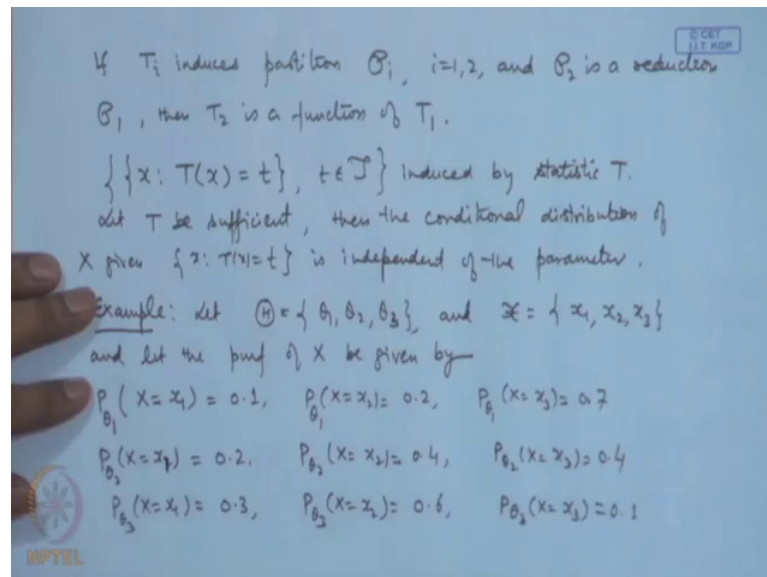 © CET
I.I.T. KGP
If Ti induces partition 𝒫i, i=1,2, and 𝒫2 is a reduction
𝒫1, then T2 is a function of T1.
{ {x: T(x) = t}, t ∈ 𝒯 } induced by statistic T.
Let T be sufficient, then the conditional distribution of
X given {x: T(x)=t} is independent of the parameter.
Example: Let Θ = {θ1, θ2, θ3}, and 𝒳 = {x1, x2, x3}
and let the pmf of X be given by
Pθ1(X=x1) = 0.1, Pθ1(X=x2) = 0.2, Pθ1(X=x3) = 0.7
Pθ2(X=x1) = 0.2. Pθ2(X=x2) = 0.4, Pθ2(X=x3) = 0.4
Pθ3(X=x1) = 0.3, Pθ3(X=x2) = 0.6, Pθ3(X=x3) = 0.1
NPTEL